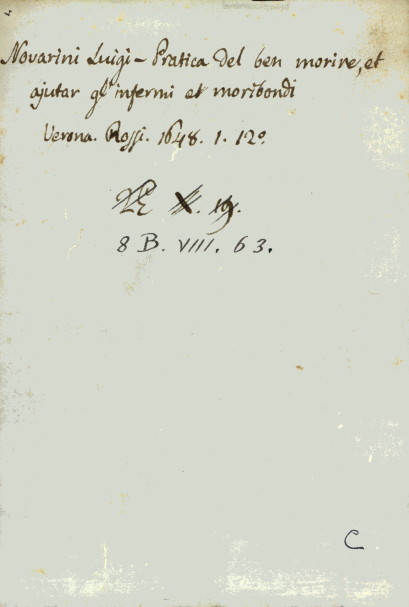 Novarini Luigi - Pratica del ben morire, et
ajutar gl'infermi et moribondi
Verona. Rossi. 1648. 1. 12º
8 B. VIII. 63.
C